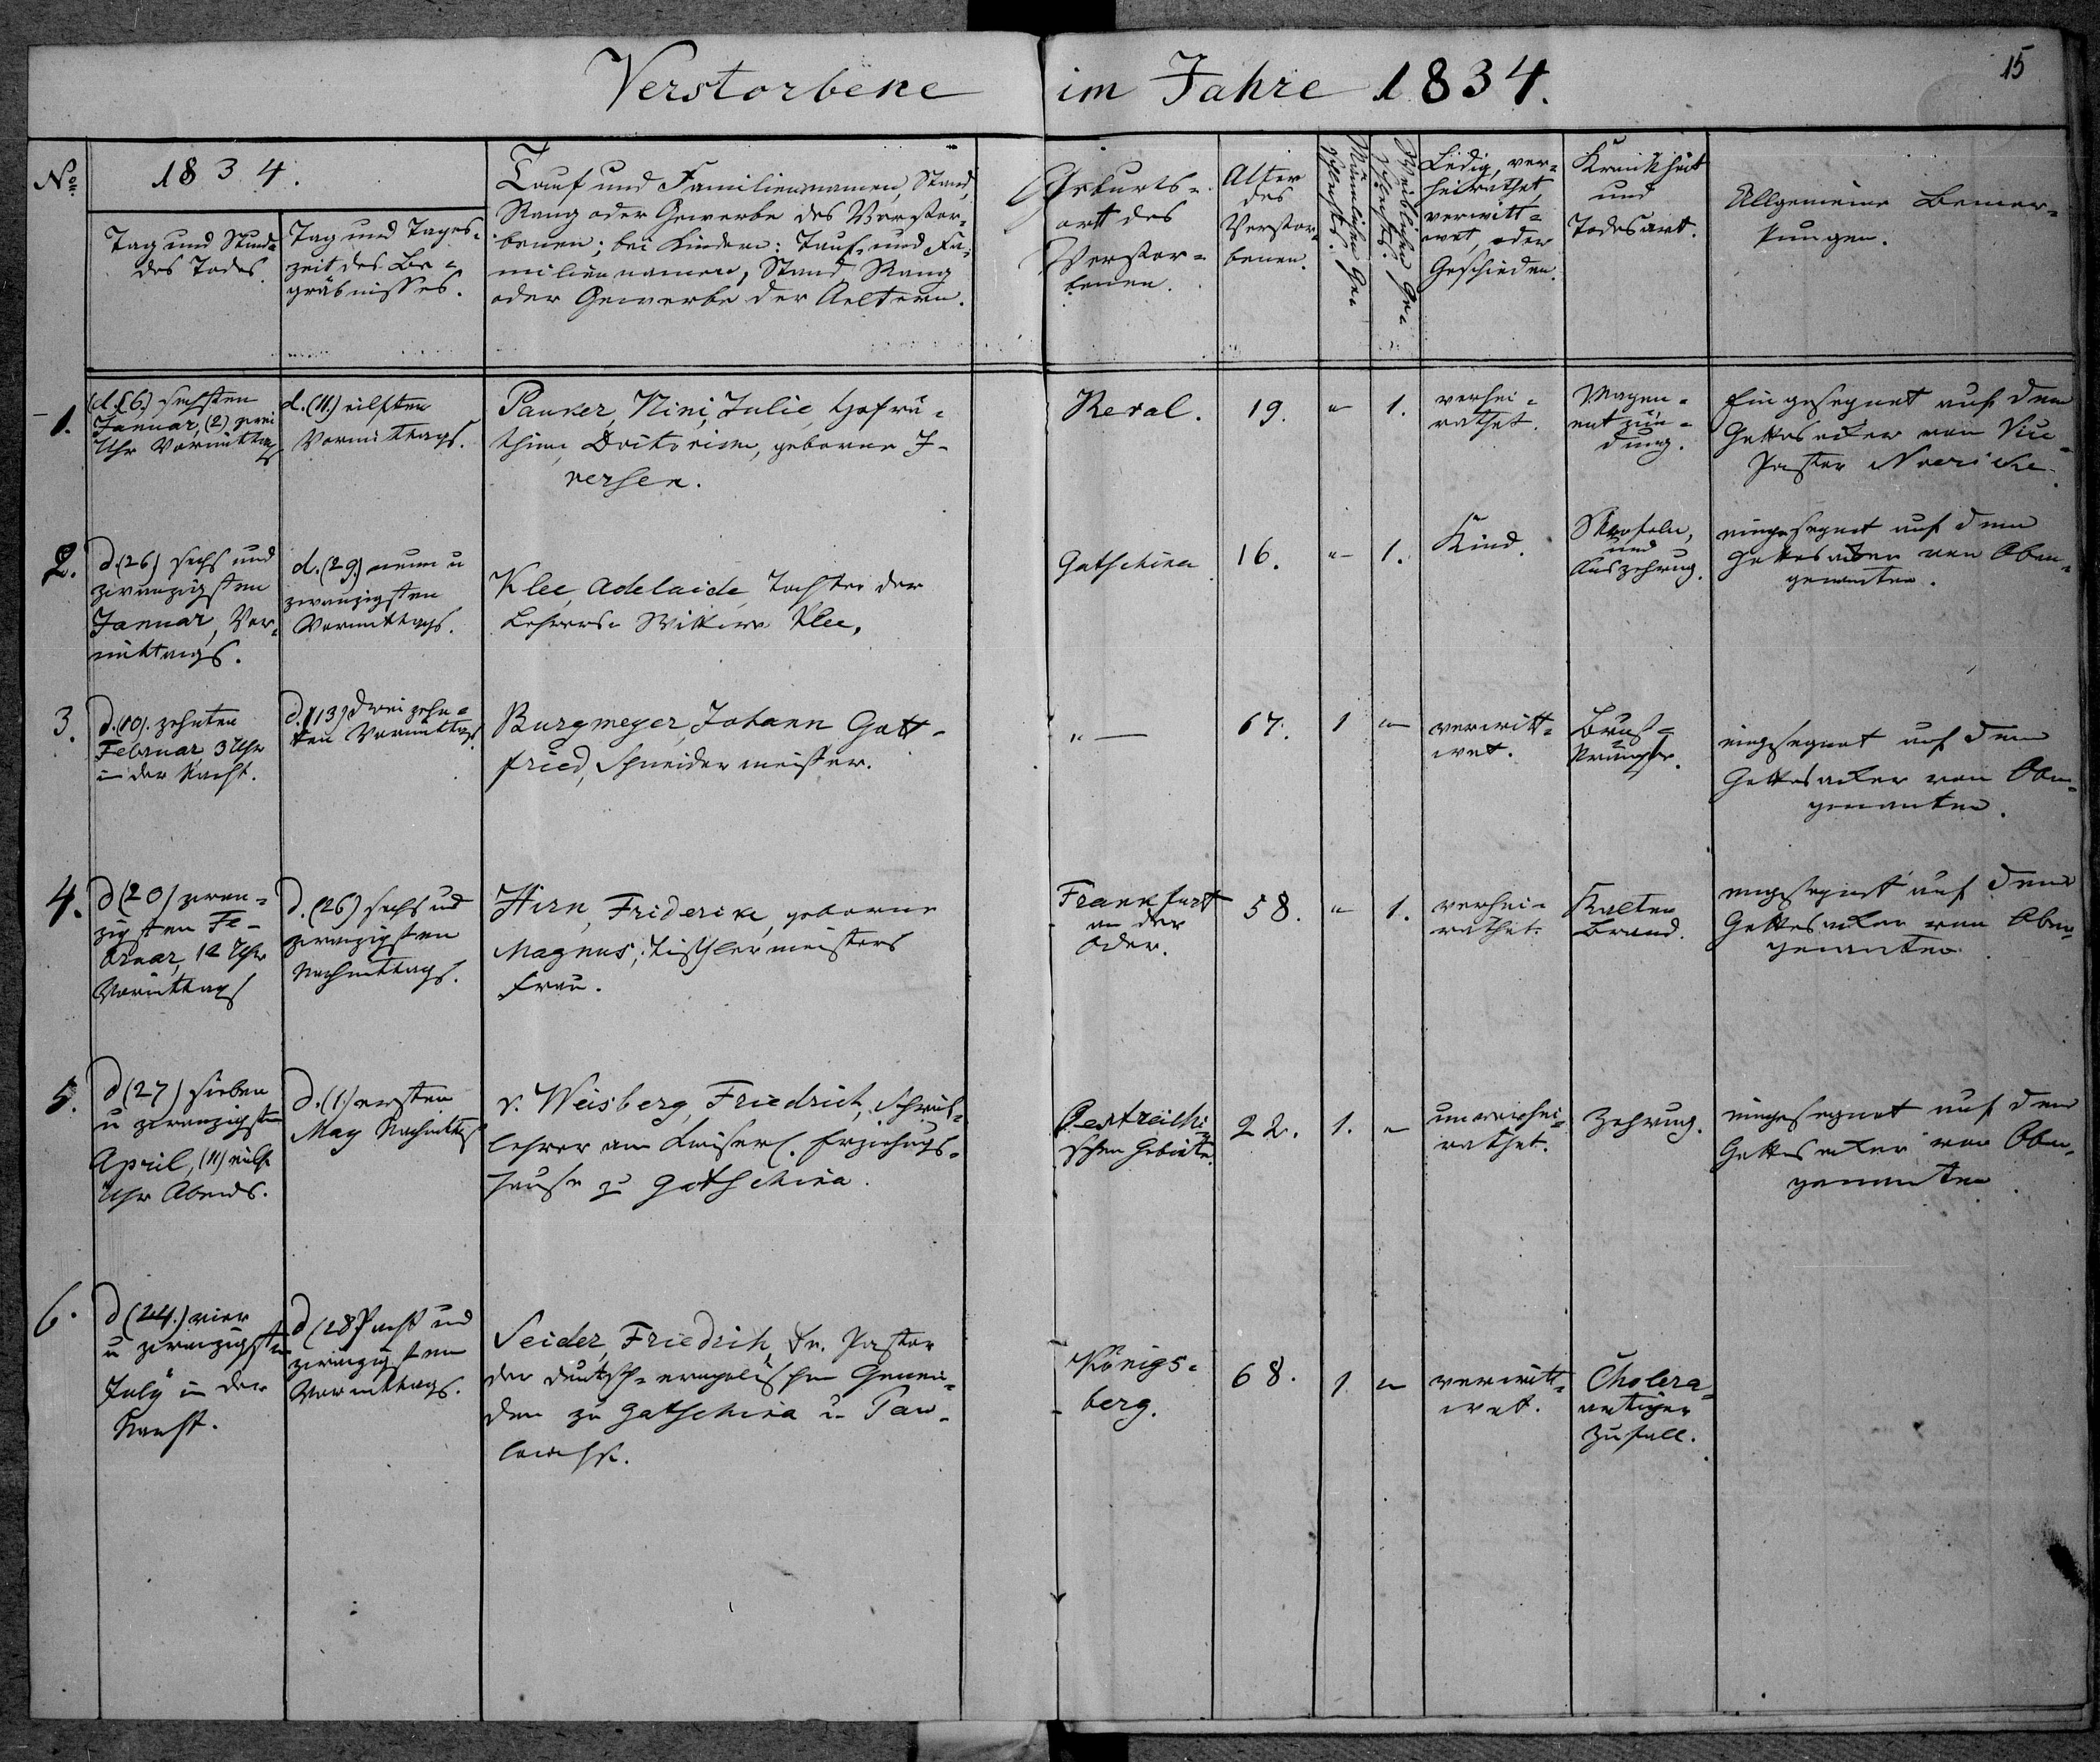 15
Verstorbene im Jahre 1834.
No.
1834.
Tag und Stunde
des Todes.
Tag und Tages-
zeit des Be-
gräbnisses.
Tauf und Familiennamen, Stand,
Rang oder Gewerbe des Verstor-
benen; bei Kindern: Tauf- und Fa-
miliennamen, Stand, Rang
oder Gewerbe der Aeltern.
Geburts-
ort des
Verstor-
benen.
Alter
des
Verstor-
benen.
Männlichen Ge-
schlechts.
Weiblichen Ge-
schlechts.
Ledig, ver-
heirathet,
verwitt-
wet, oder
Geschieden.
Krankheit
und
Todesart.
Allgemeine Bemer-
kungen.
1.
(d. (6.) sechsten
Januar, (2) zwei
Uhr Vormittags
d. (11.) eilften
Vormittags.
Pauker, Nini, Julie, Hofrä-
thin, Doctorin, geborne I-
versen.
Reval.
19.
"
1.
verhei-
rathet.
Magen-
entzün-
dung.
Eingesegnet auf dem
Gottesacker von Vice-
Pastor
2.
d. (26) sechs und
zwanzigsten
Januar, Vor-
mittags.
d. (29.) neun u
zwanzigsten
Vormittags.
Klee, Adelaide, Tochter der
Lehrers Wittwe Klee,
Gatschina
16.
"
1.
Kind.
Skrofeln,
und
Auszehrung.
eingesegnet auf dem
Gottesacker von Oben-
genannten.
3.
d. (10). zehnten
Februar 3 Uhr
in der Nacht.
d. (13) dreizehn-
ten Vormittags
Burgmeyer, Johann Gott-
fried, Schneidermeister.
" —
67.
1
"
verwitt-
wet.
Brust-
krämpfe.
eingesegnet auf dem
Gottesacker von Oben-
genannten.
4.
d (20) zwan-
zigsten Fe-
bruar, 12 Uhr
Vormittags
d. (26) sechs und
zwanzigsten
Nachmittags.
Hirn, Friderike, geborne
Magnus, Tischlermeisters
Frau.
Frankfurt
an der
Oder.
58.
"
1.
verhei-
rathet.
Kalter
Brand.
eingesegnet auf dem
Gottesacker von Oben-
genannten
5.
d (27) sieben
u zwanzigsten
April, (11) eilf
Uhr Abends.
d. (1) ersten
May Nachmittags
v. Weisberg, Friedrich,
lehrer am Kaiserl. Erziehungs-
hause zu Gatschina.
Oestreichi-
schen Gebiete.
22.
1.
"
unverhei-
rathet.
Zehrung.
eingesegnet auf dem
Gottesacker von Oben-
genannten
6.
d (24.) vier
u zwanzigsten
July in der
Nacht.
d (28) acht und
zwanzigsten
Vormittags.
Seider, Friedrich, Pastor
der deutsch- Gemein-
den zu Gatschina u. Paw-
Königs-
berg.
68.
1
"
verwitt-
wet.
Cholera-
artiger
Zufall.